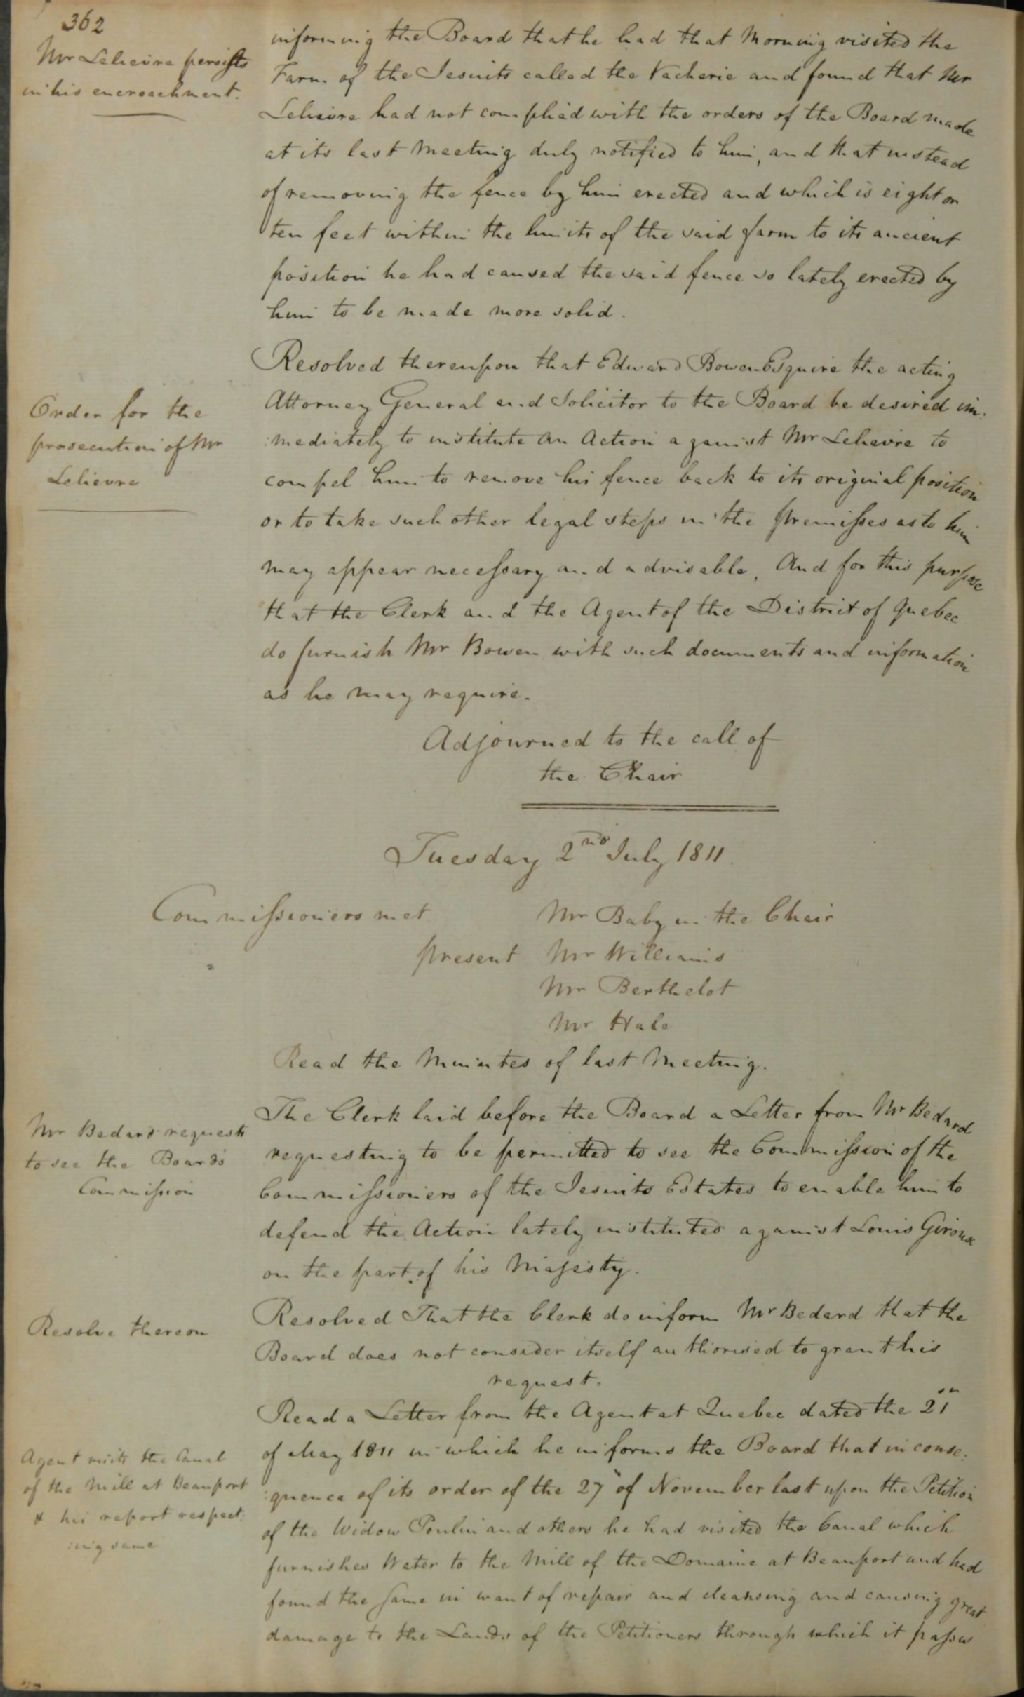 362
Mr Lelievre persists
in his encroachment.
informing the Board that he had that Morning visited the
Farm of the Jesuits called the Vacherie and found that Mr
Lelievre had not complied with the orders of the Board made
at its last Meeting duly notified to him, and that instead
of removing the fence by him erected and which is eight or
ten feet within the limits of the said farm to its ancient
position he had caused the said fence so lately erected by
him to be made more solid.
Order for the
prosecution of Mr
Lelievre
Resolved thereupon that Edward Bowen Esquire the acting
Attorney General and Solicitor to the Board be desired im:
:mediately to institute an Action against Mr Lelievre to
compel him to remove his fence back to its original position
or to take such other legal steps in the premisses as to him
may appear necessary and advisable. And for this purpose
that the Clerk and the Agent of the District of Quebec
do furnish Mr Bowen with such documents and information
as he may require.
Adjourned to the call of
the Chair
Tuesday 2nd July 1811.
Commissioners met
Mr Baby in the Chair
present Mr Williams
Mr Berthelot
Mr Hale
Read the Minutes of last Meeting.
Mr Bedard requests
to see the Board's
Commission
The Clerk laid before the Board a Letter from Mr Bedard
requesting to be permitted to see the Commission of the
Commissioners of the Jesuits Estates to enable him to
defend the Action lately instituted against Louis Giroux
on the part of his Majesty.
Resolve thereon
Resolved That the Clerk do inform Mr Bedard that the
Board does not consider itself authorised to grant his
request.
Agent visits the Canal
of the Mill at Beauport
& his report respect:
:ing same
Read a Letter from the Agent at Quebec dated the 21st
of May 1811 in which he informs the Board that in conse:
:quence of its order of the 27th of November last upon the Petition
of the Widow Poulin and others he had visited the Canal which
furnishes Water to the Mill of the Domaine at Beauport and had
found the same in want of repair and cleansing and causing great
damage to the Lands of the Petitioners through which it passes